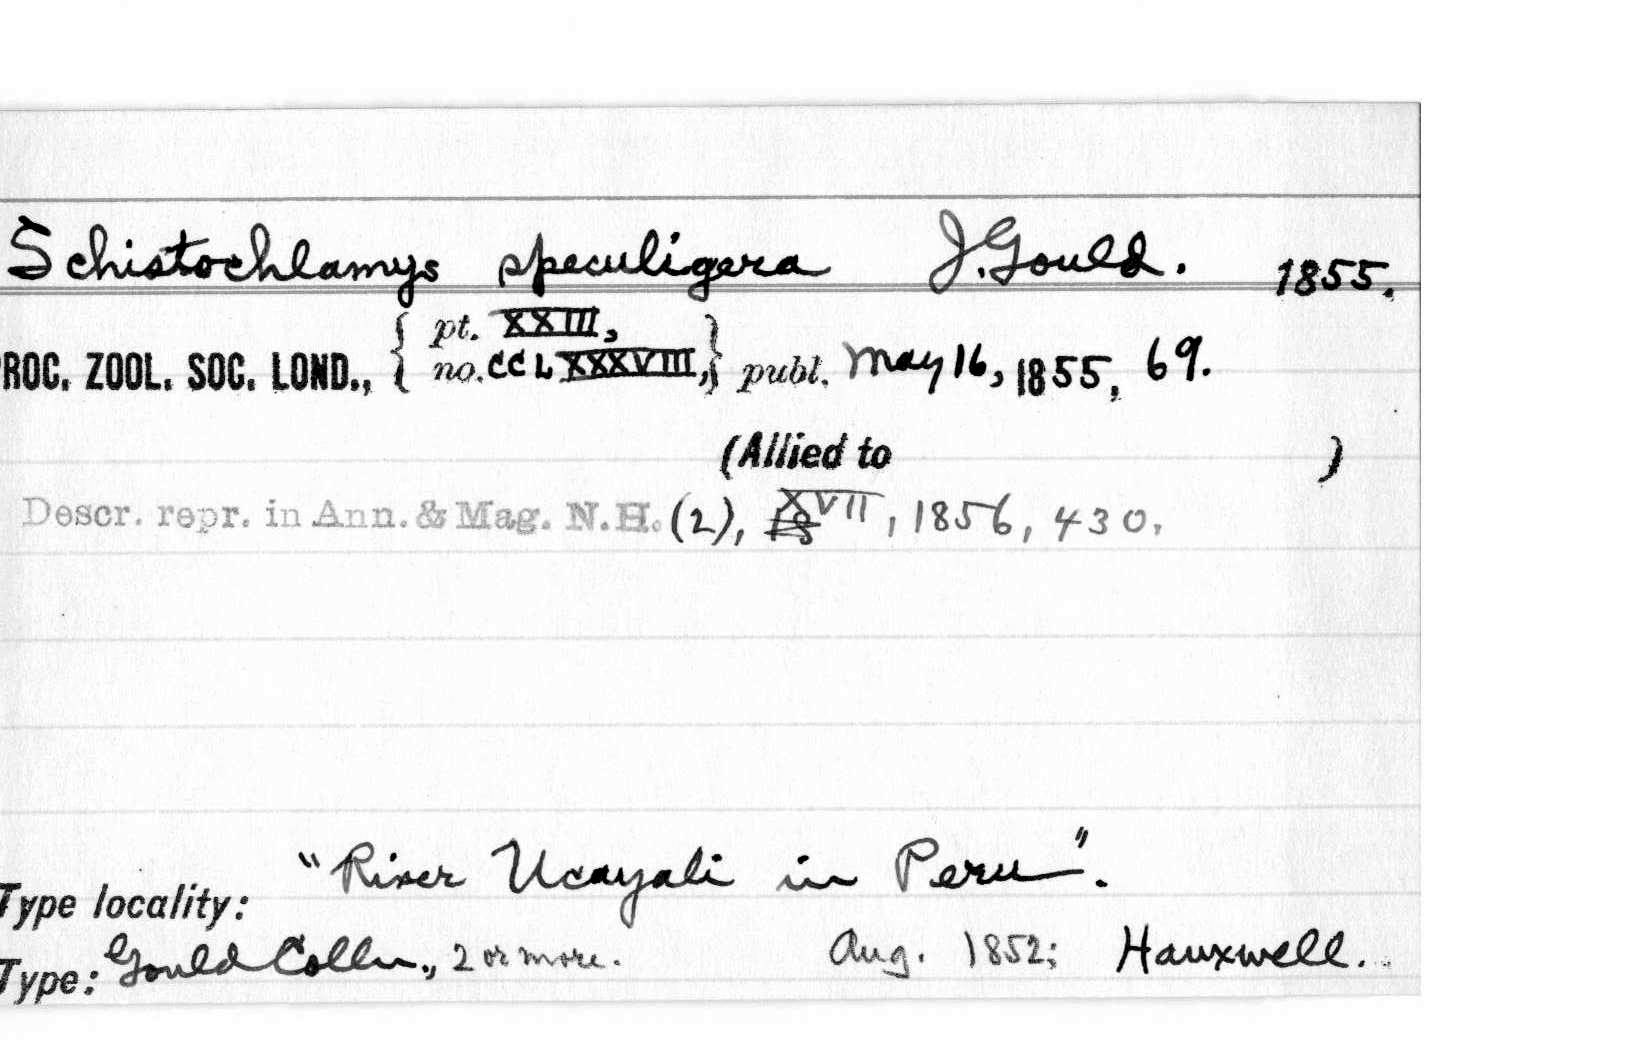 Schistochlamys speculigera J. Gould. 1855.
ROC. ZOOL. SOC. LOND., { pt. XXIII, no. CCLXXXVIII, } publ. May 16, 1855, 69.
(Allied to )
Descr. repr. in Ann. & Mag. N.H. (2), XVII, 1856, 430.
"River Ucayali in Peru".
Type locality:
Type: Gould Colln., 2 or more. Aug. 1852; Hauxwell.